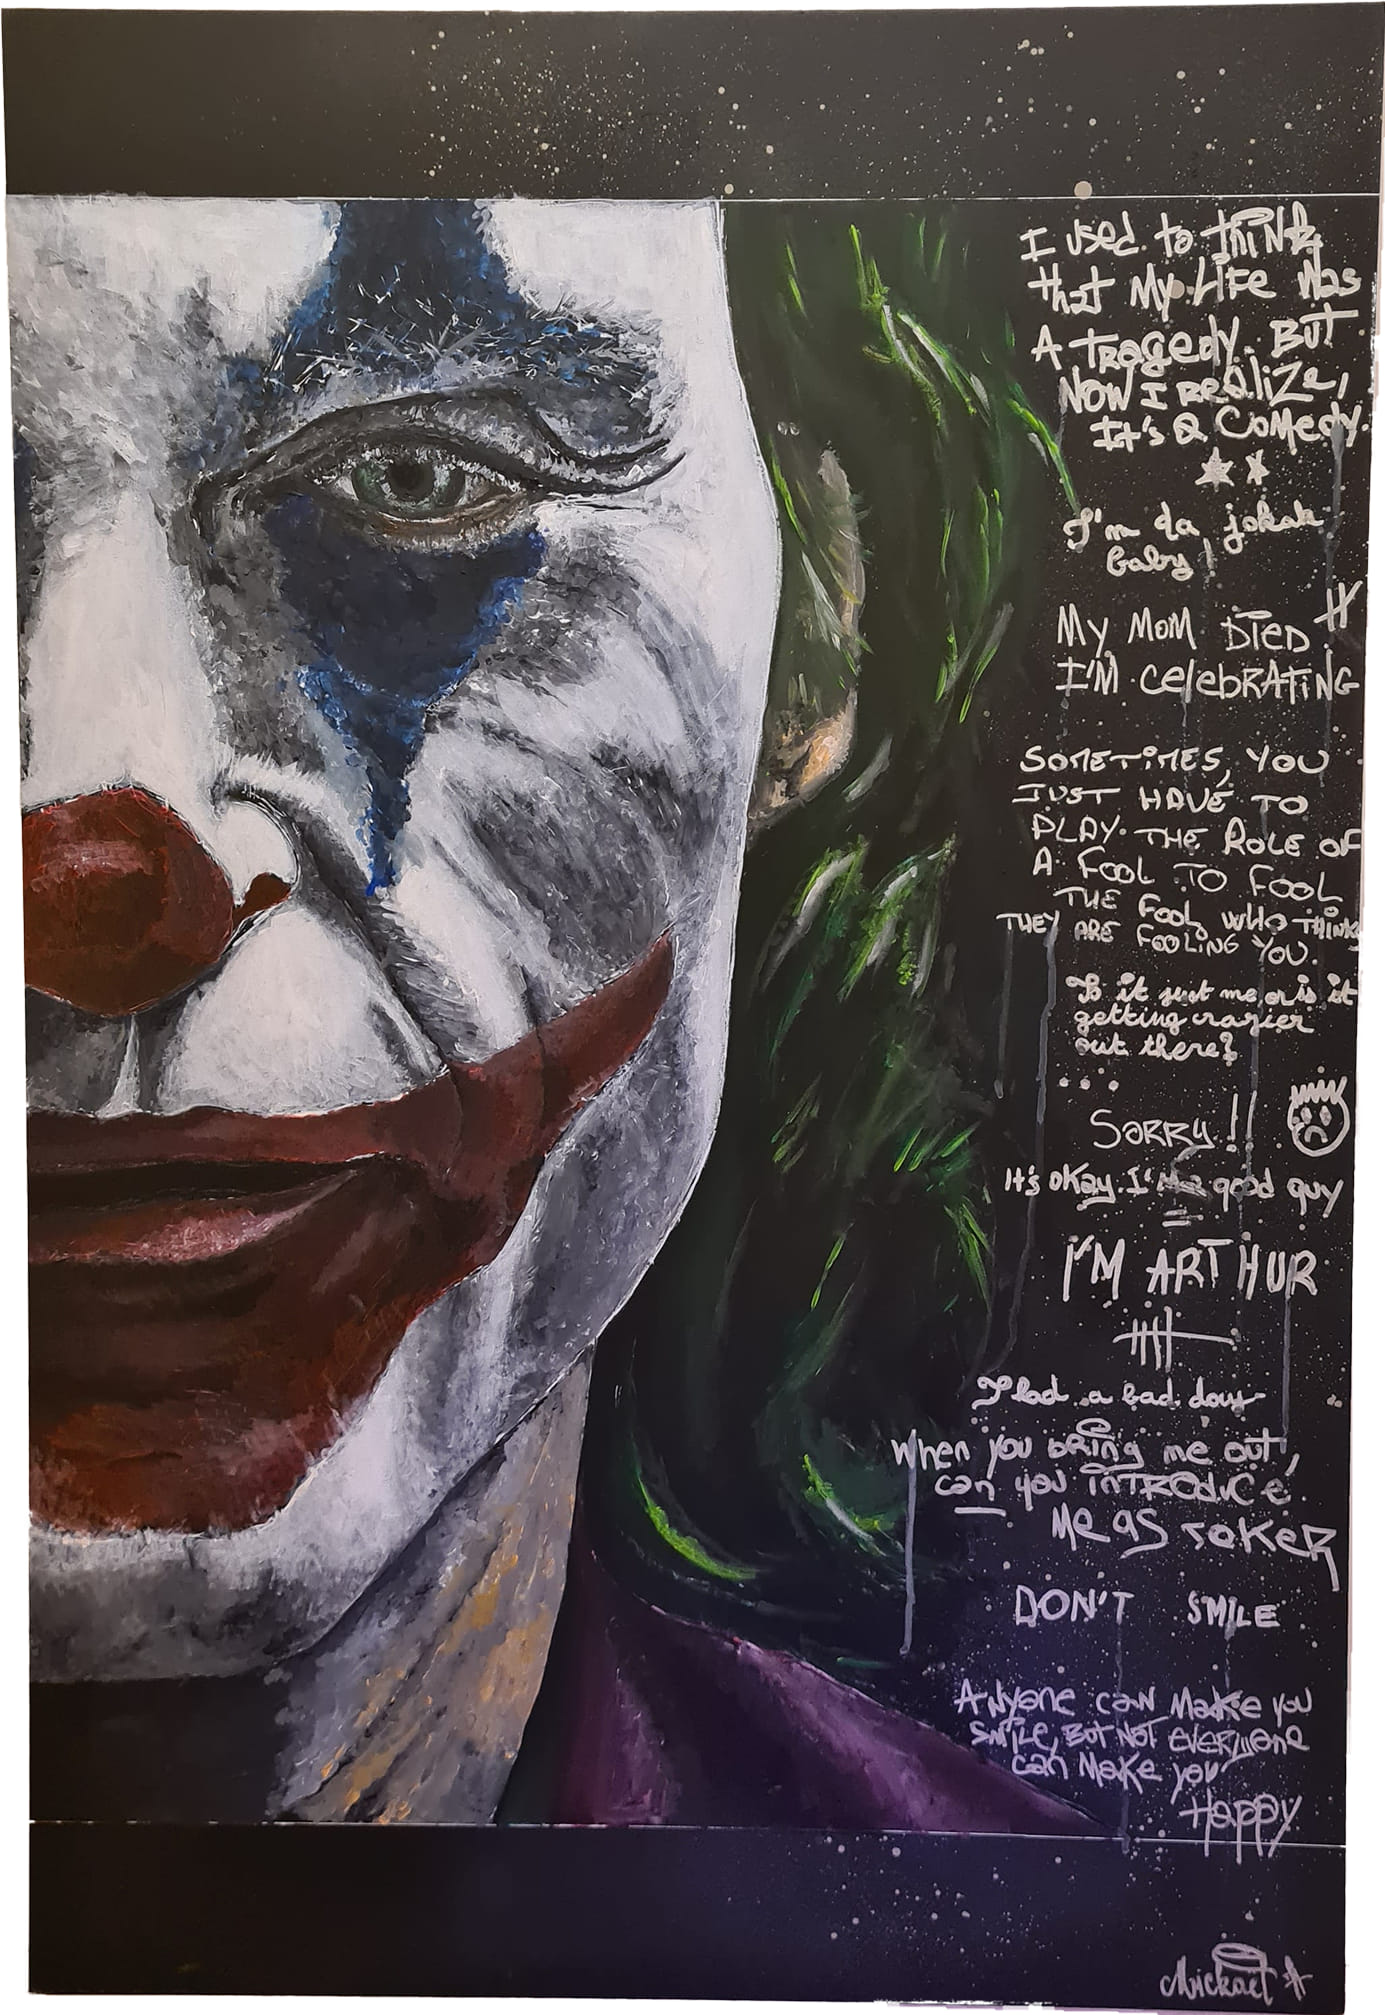 I used to think
that My Life Was
A tragedy. But
NOW I Realize,
It's a Comedy.
I'm da jokah
baby!
My MOM DiED
I'M CelebRATiNG
SOMETiMES, YOU
JUST HAVE TO
PLAY THE ROLE OF
A FOOL TO FOOL
THE FOOL WHO THINK
THEY ARE FOOLiNG YOU.
Is it just me or is it
getting crazier
out there?
...
SORRY!!
It's okay. I'm a good guy
I'M ARTHUR
I had a bad day
When you bring me out,
can you iNTRODUCE
Me as JOKER
DON'T SMILE
Anyone can Make you
SMILE, BUT NOT EVERYone
can Make you
Happy
Mickaël A